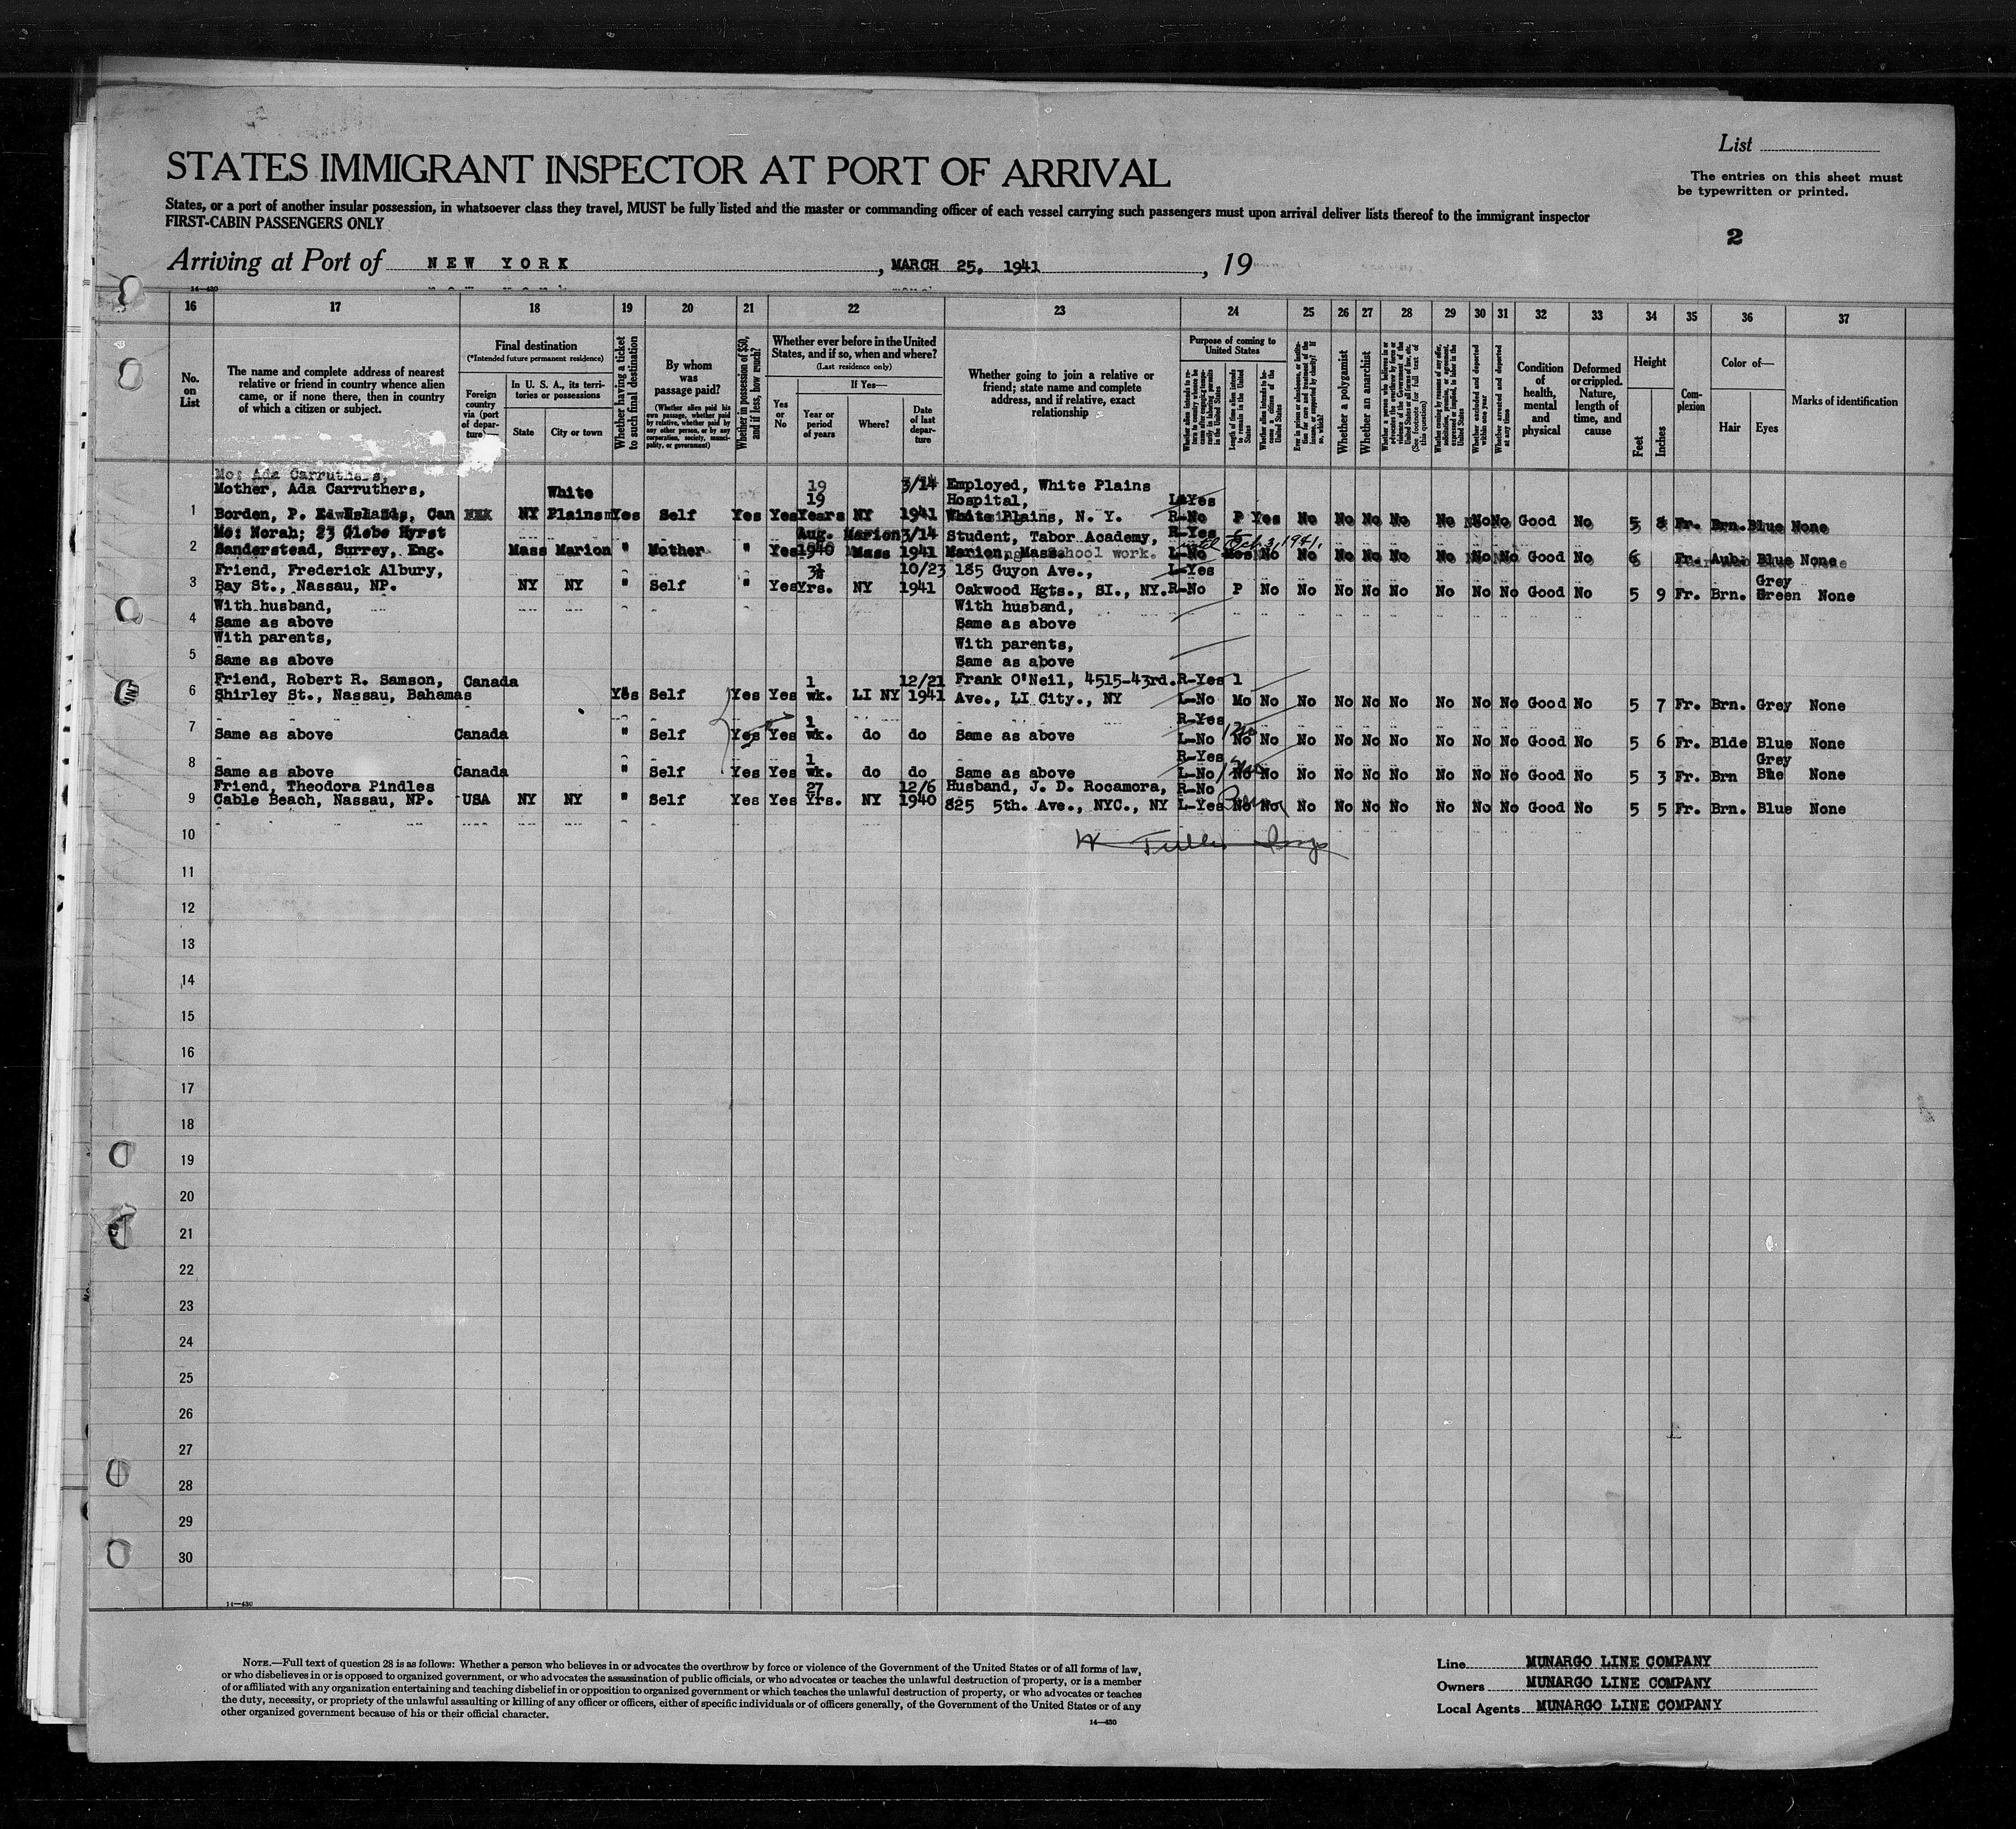 List
STATES IMMIGRANT INSPECTOR AT PORT OF ARRIVAL
The entries on this sheet must
be typewritten or printed.
States, or a port of another insular possession, in whatsoever class they travel, MUST be fully listed and the master or commanding officer of each vessel carrying such passengers must upon arrival deliver lists thereof to the immigrant inspector
FIRST-CABIN PASSENGERS ONLY
2
Arriving at Port of NEW YORK, MARCH 25, 1941, 19
14—430
16 17 18 19 20 21 22 23 24 25 26 27 28 29 30 31 32 33 34 35 36 37
No. on List
The name and complete address of nearest relative or friend in country whence alien came, or if none there, then in country of which a citizen or subject.
Final destination
(*Intended future permanent residence)
Foreign country via (port of departure)
In U. S. A., its territories or possessions
State
City or town
Whether having a ticket to such final destination
By whom was passage paid?
(Whether alien paid his own passage, whether paid by relative, whether paid by any other person, or by any corporation, society, municipality, or government)
Whether in possession of $50, and if less, how much?
Whether ever before in the United States, and if so, when and where?
(Last residence only)
Yes or No
If Yes—
Year or period of years
Where?
Date of last departure
Whether going to join a relative or friend; state name and complete address, and if relative, exact relationship
Purpose of coming to United States
Length of time alien intends to remain in the United States
Whether alien intends to become a citizen of the United States
Whether a polygamist
Whether an anarchist
Whether excluded and deported within one year
Whether arrested and deported at any time
Condition of health, mental and physical
Deformed or crippled. Nature, length of time, and cause
Height
Feet
Inches
Complexion
Color of—
Hair
Eyes
Marks of identification
Mo: Ada Carruthers,
Mother, Ada Carruthers, White 19 3/14 Employed, White Plains
19 Hospital, L-Yes
1 Borden, P. Can NY Plains Yes Self Yes Yes Years NY 1941 White Plains, N. Y. R-No P Yes No No No No No No No Good No 5 8 Fr. Brn. Blue None
Mo: Norah; 23 Glebe Hyrst Aug. Marion 3/14 Student, Tabor Academy, R-Yes
until Oct. 3, 1941.
2 Sanderstead, Surrey, Eng. Mass Marion " Mother " Yes 1940 Mass 1941 Marion, Mass school work. L-No Mos No No No No No No No No Good No 6 Fr. Aub. Blue None
Friend, Frederick Albury, 10/23 185 Guyon Ave., L-Yes
Grey
3 Bay St., Nassau, NP. NY NY " Self " Yes Yrs. NY 1941 Oakwood Hgts., SI., NY. R-No P No No No No No No No No Good No 5 9 Fr. Brn. Green None
With husband, With husband,
4 Same as above Same as above
With parents, With parents,
5 Same as above Same as above
Friend, Robert R. Samson, Canada 1 12/21 Frank O'Neil, 4515-43rd. R-Yes 1
6 Shirley St., Nassau, Bahamas Yes Self Yes Yes wk. LI NY 1941 Ave., LI City., NY L-No Mo No No No No No No No No Good No 5 7 Fr. Brn. Grey None
1 R-Yes
7 Same as above Canada " Self Yes Yes wk. do do Same as above L-No No No No No No No No No No Good No 5 6 Fr. Blde Blue None
1 R-Yes Grey
8 Same as above Canada " Self Yes Yes wk. do do Same as above L-No No No No No No No No No No Good No 5 3 Fr. Brn Blue None
Friend, Theodora Pindles 27 12/6 Husband, J. D. Rocamora, R-No
9 Cable Beach, Nassau, NP. USA NY NY " Self Yes Yes Yrs. NY 1940 825 5th. Ave., NYC., NY L-Yes No No No No No No No No No Good No 5 5 Fr. Brn. Blue None
10
11
12
13
14
15
16
17
18
19
20
21
22
23
24
25
26
27
28
29
30
14—430
NOTE.—Full text of question 28 is as follows: Whether a person who believes in or advocates the overthrow by force or violence of the Government of the United States or of all forms of law,
or who disbelieves in or is opposed to organized government, or who advocates the assassination of public officials, or who advocates or teaches the unlawful destruction of property, or is a member
of or affiliated with any organization entertaining and teaching disbelief in or opposition to organized government or which teaches the unlawful destruction of property, or who advocates or teaches
the duty, necessity, or propriety of the unlawful assaulting or killing of any officer or officers, either of specific individuals or of officers generally, of the Government of the United States or of any
other organized government because of his or their official character.
14—430
Line MUNARGO LINE COMPANY
Owners MUNARGO LINE COMPANY
Local Agents MUNARGO LINE COMPANY